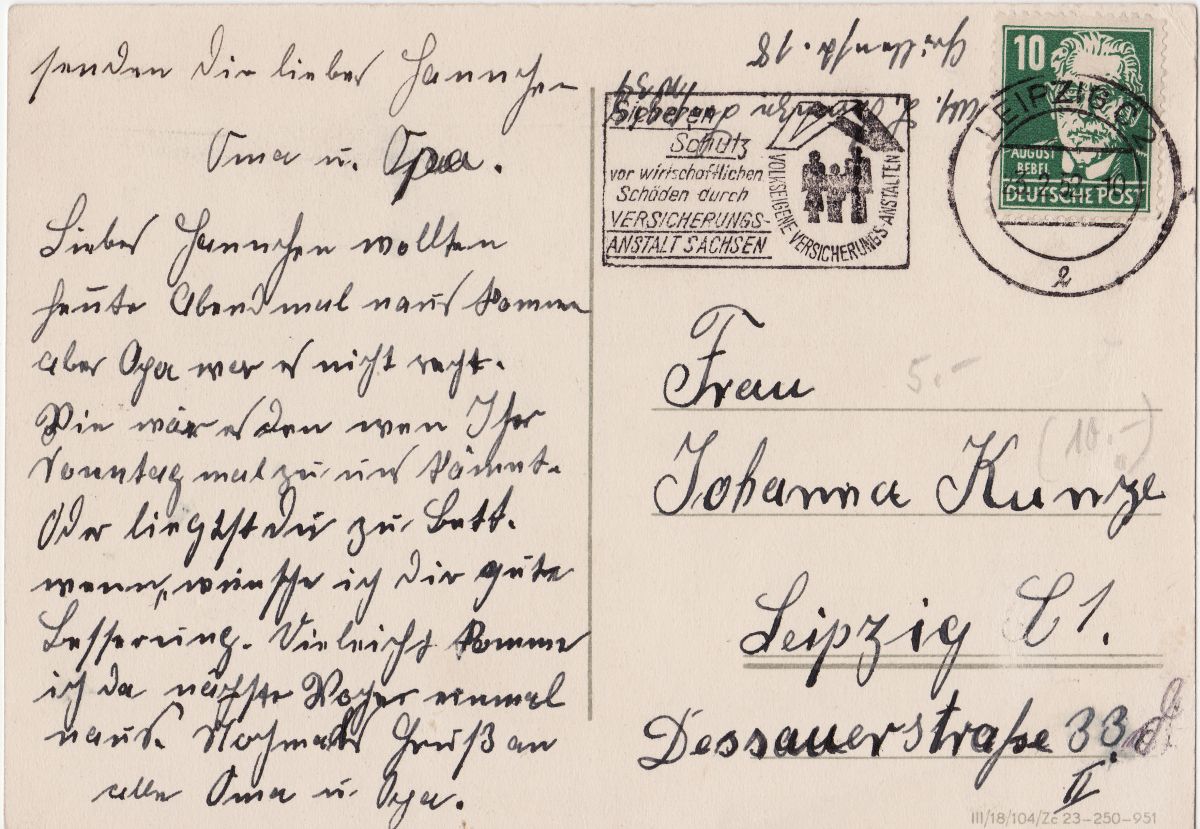 senden Dir liebes Hannchen
Oma u. Opa.
Liebes Hannchen wollten
heute Abend mal naus kommen
aber Opa war es nicht recht.
Wie wär es den wen Ihr
Sonntag mal zu uns kämmt.
Oder liegst du zu Bett.
wenn, wünsche ich dir gute
Besserung. Vieleicht komme
ich da nächste Woche einmal
naus. Nochmals Gruß an
alle Oma u. Opa.
Abs.
18
10
AUGUST
BEBEL
DEUTSCHE POST
LEIPZIG C2
2
Sicheren
Schutz
vor wirtschaftlichen
Schäden durch
VERSICHERUNGS-
ANSTALT SACHSEN
VOLKSEIGENE VERSICHERUNGS-ANSTALTEN
Frau
5.-
(10.-)
Johanna Kunze
Leipzig C1.
Dessauerstraße 33.
II
III/18/104/Zc 23-250-951